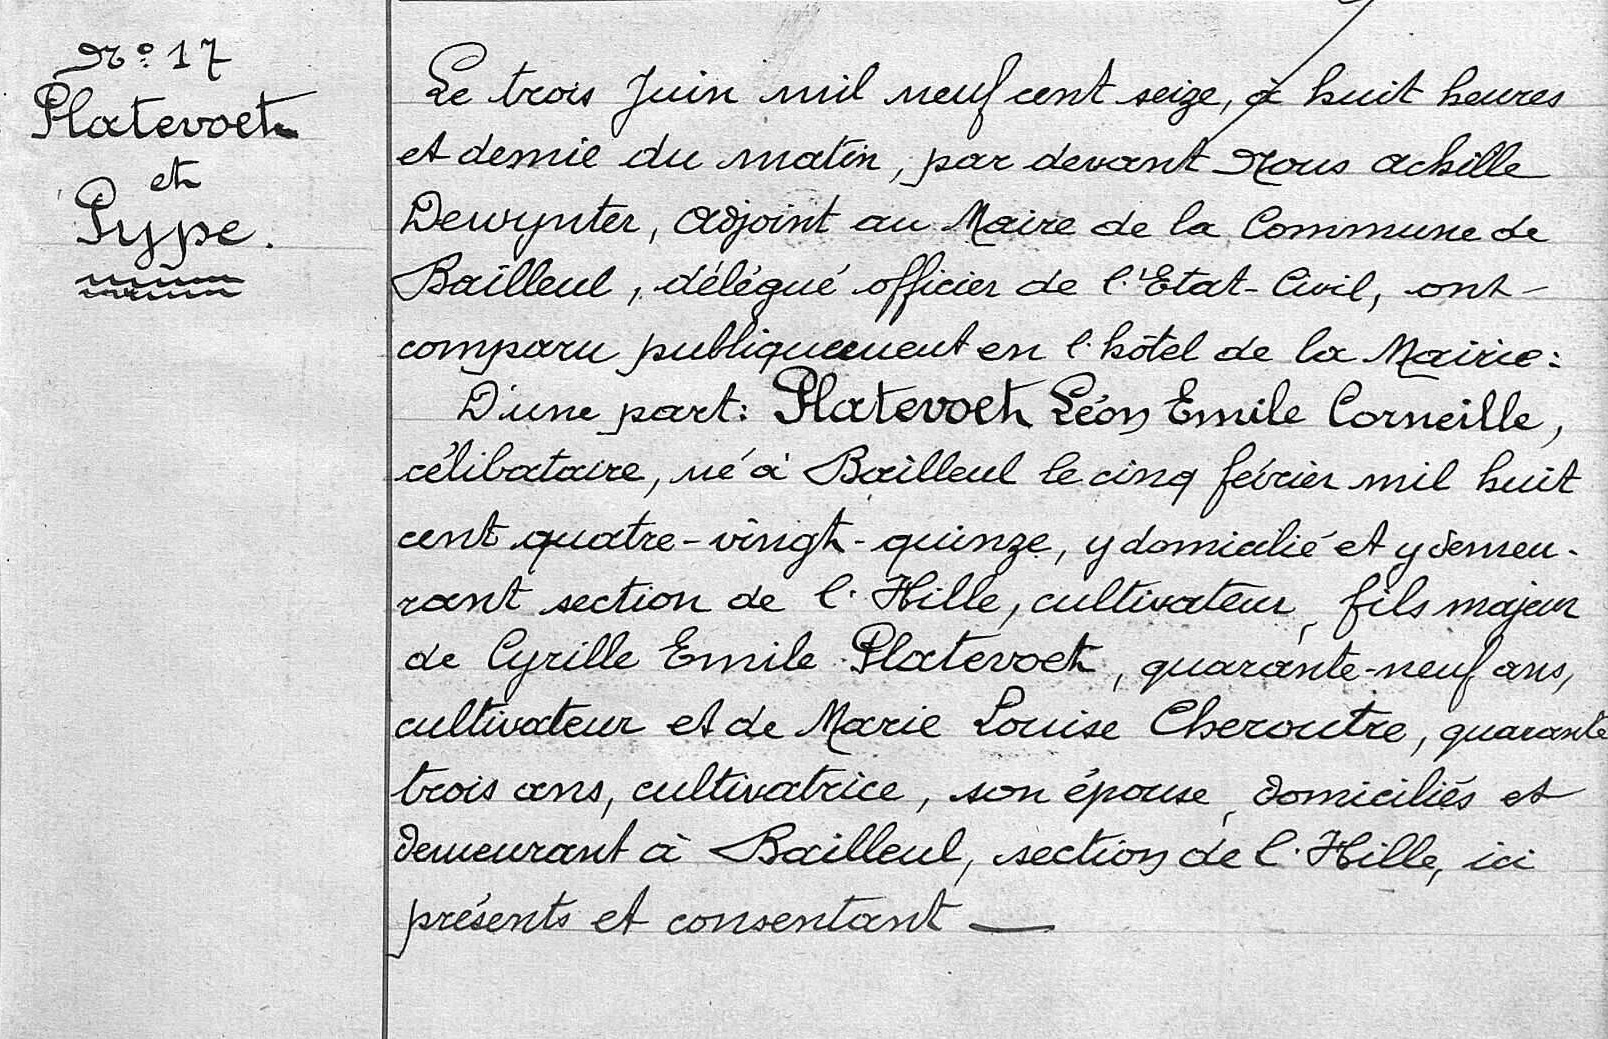 No: 17
Platevoet
et
Pype.
Le trois Juin mil neuf cent seize, à huit heures
et demie du matin, par devant Nous Achille
Dewynter, Adjoint au Maire de la Commune de
Bailleul, délégué officier de l'Etat-Civil, ont
comparu publiquement en l'hôtel de la Mairie:
D'une part: Platevoet Léon Emile Corneille,
célibataire, né à Bailleul le cinq février mil huit
cent quatre-vingt-quinze, y domicilié et y demeu-
rant section de l'Hille, cultivateur, fils majeur
de Cyrille Emile Platevoet, quarante-neuf ans,
cultivateur et de Marie Louise Cheroutre, quarante
trois ans, cultivatrice, son épouse, domiciliés et
demeurant à Bailleul, section de l'Hille, ici
présents et consentant —